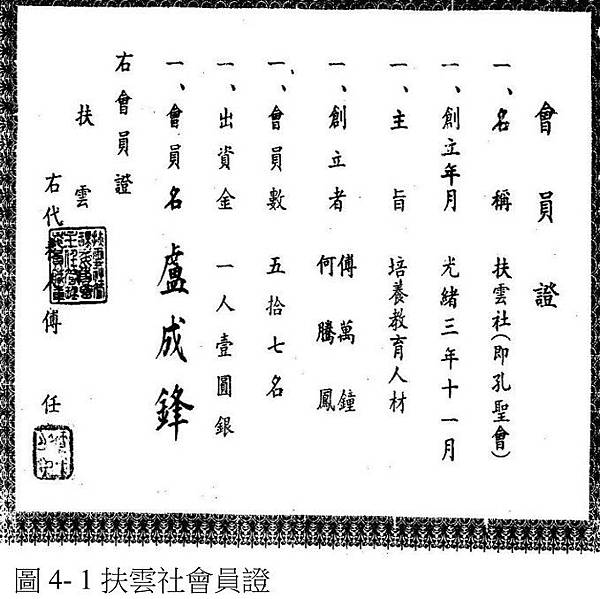 會員證
一、名稱 扶雲社(即孔聖會)
一、創立年月 光緒三年十一月
一、主旨 培養教育人材
一、創立者 傅萬鐘
何騰鳳
一、會員數 五拾七名
一、出資金 一人壹圓銀
一、會員名 盧成鋒
右會員證
扶雲
右代表人傅 任
圖 4- 1 扶雲社會員證